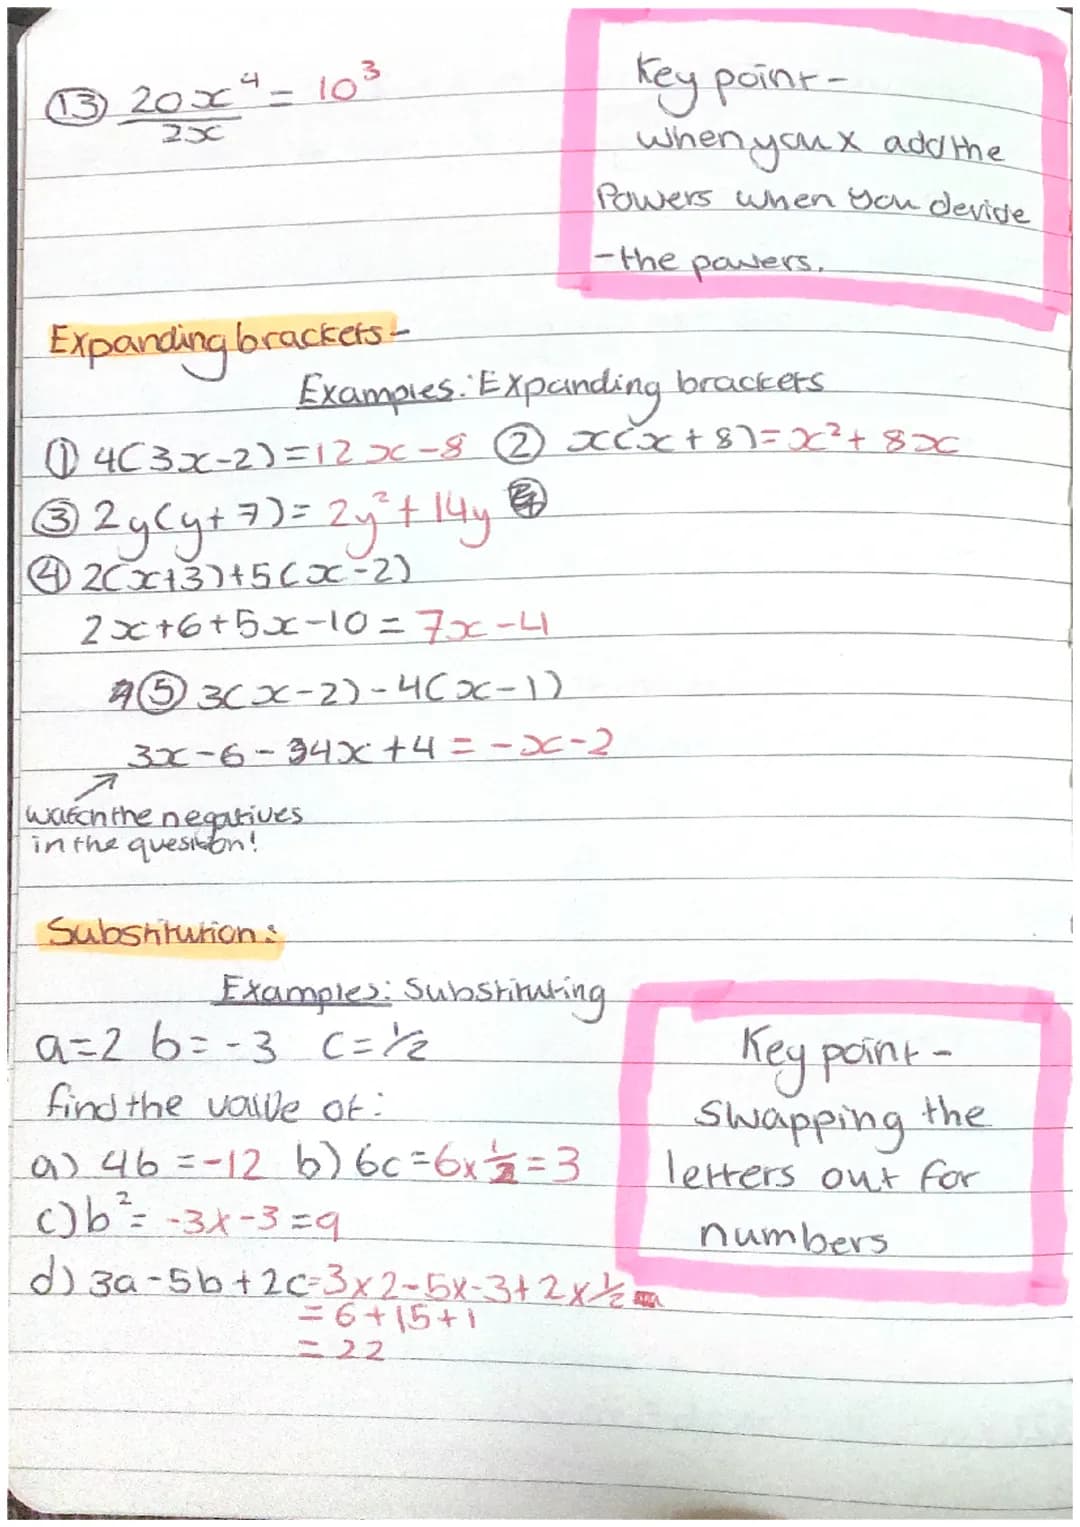 ⑬ 20x⁴/2x = 10³
Key point -
when you x add the
Powers when you devide
- the powers.
Expanding brackets -
Examples: Expanding brackets
① 4(3x-2)=12x-8 ② x(x+8)=x²+8x
③ 2y(y+7)= 2y²+14y
④ 2(x+3)+5(x-2)
2x+6+5x-10=7x-4
⑤ 3(x-2)-4(x-1)
3x-6-4x+4=-x-2
watch the negatives
in the question!
Substitution:
Examples: Substituting
a=2 b=-3 c=½
find the value of:
a) 4b=-12 b) 6c=6x½=3
c) b²= -3x-3=9
d) 3a-5b+2c=3x2-5x-3+2x½
=6+15+1
=22
Key point -
Swapping the
letters out for
numbers